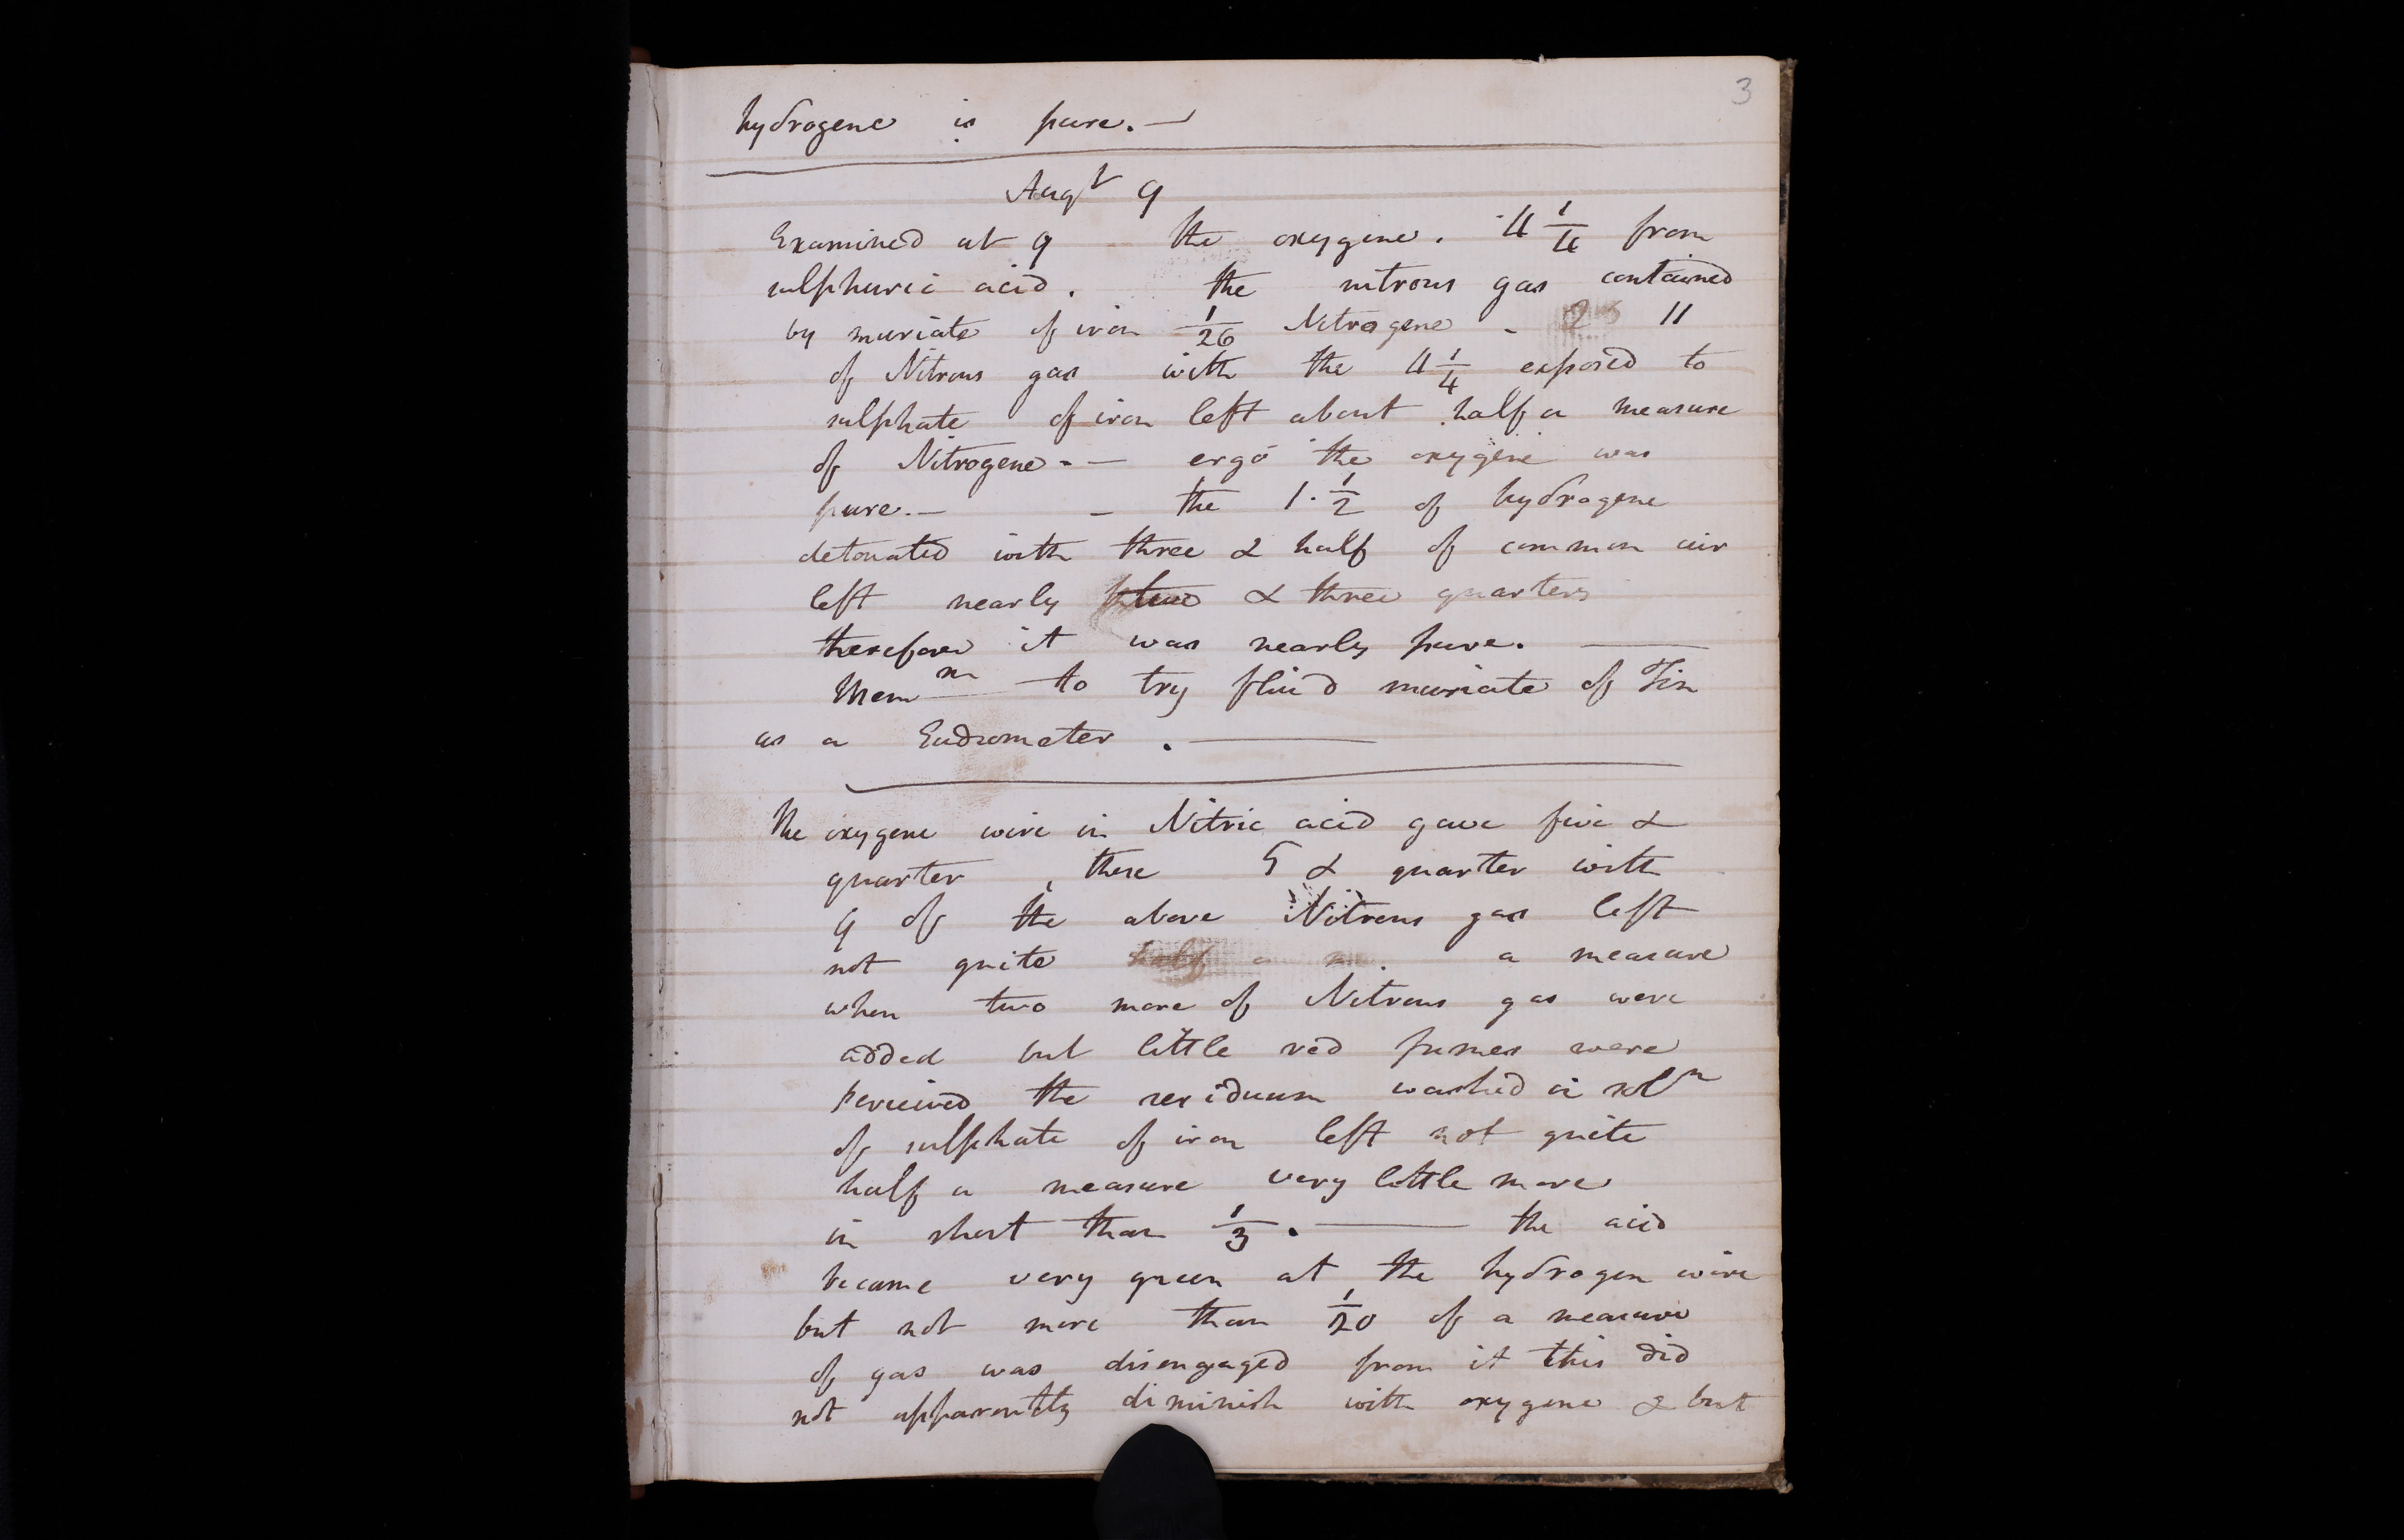 3
hydrogene is pure. —
Augt 9
Examined at 9 the oxygene. 4 1/4 from
sulphuric acid. the nitrous gas contained
by muriate of iron 1/26 Nitrogene - 11
of Nitrous gas with the 4 1/4 exposed to
sulphate of iron left about half a measure
of Nitrogene - — ergo the oxygene was
pure. — - the 1. 1/2 of hydrogene
detonated with three & half of common air
left nearly two & three quarters
therefore it was nearly pure. —
Memm — to try fluid muriate of Tin
as a Eudiometer . —
The oxygene wire in Nitric acid gave five &
quarter, these 5 & quarter with
9 of the above Nitrous gas left
not quite half a m. a measure
when two more of Nitrous gas were
added but little red fumes were
perceived the residuum washed in soln
of sulphate of iron left not quite
half a measure very little more
in short than 1/3. — the acid
became very green at the hydrogen wire
but not more than 1/20 of a measure
of gas was disengaged from it this did
not apparently diminish with oxygene & but